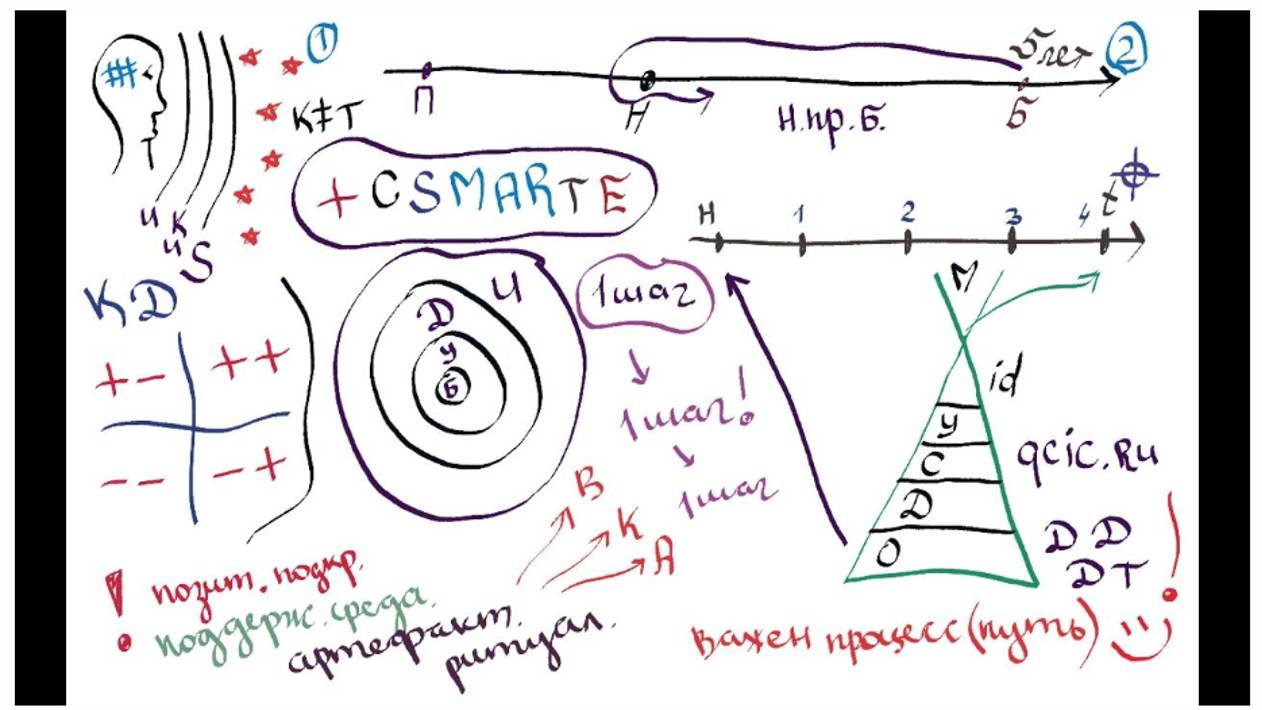 #
1
5 лет
2
П
Н
Н.пр.Б.
Б
К≠Т
+CSMARTE
и к
и S
Н 1 2 3 4 t
KD
+-
++
--
-+
И
Д
У
Б
1 шаг
1 шаг!
1 шаг
М
id
У
С
Д
О
qcic.Ru
DD
DT
В
К
А
! позит. подкр.
поддерж. среда.
артефакт.
ритуал.
Важен процесс (путь) !